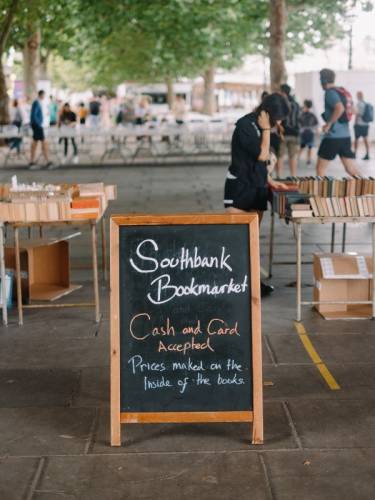 Southbank
Bookmarket
Cash and Card
Accepted
Prices maked on the
Inside of the books.